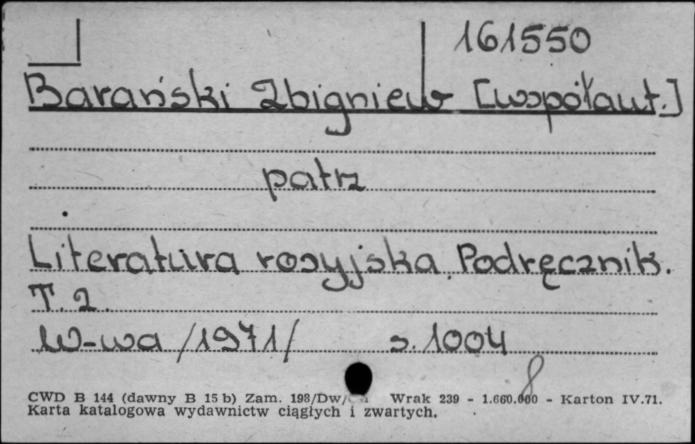 161550
Barański Zbigniew [współaut.]
patrz
Literatura rosyjska. Podręcznik.
T. 2.
W-wa /1971/ s. 1004
8
CWD B 144 (dawny B 15 b) Zam. 198/Dw/ Wrak 239 - 1.660.000 - Karton IV.71.
Karta katalogowa wydawnictw ciągłych i zwartych.